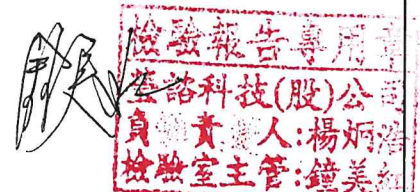 檢驗報告專用章
科技(股)公司
負責人:楊炳
檢驗室主管:鐘美